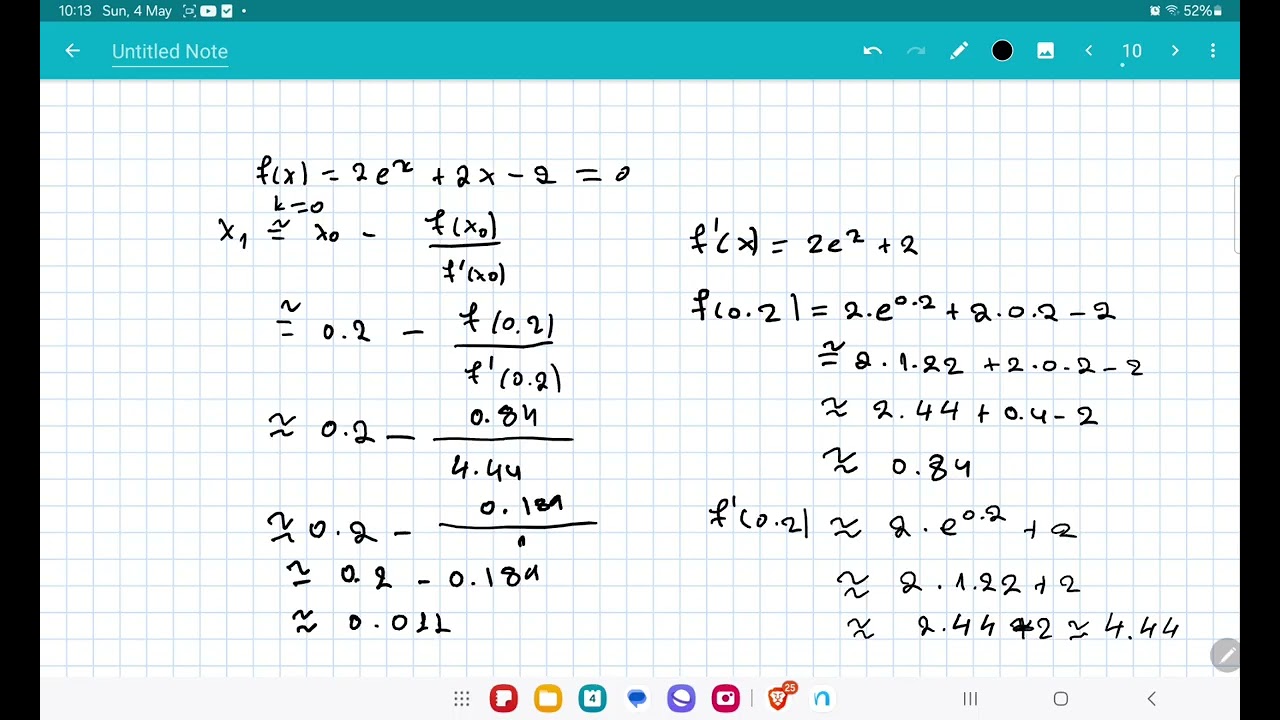 10:13 Sun, 4 May 52%
Untitled Note 10
f(x) = 2e^x + 2x - 2 = 0
k=0
x₁ ≅ x₀ - f(x₀) / f'(x₀)
≅ 0.2 - f(0.2) / f'(0.2)
≈ 0.2 - 0.84 / 4.44
≈ 0.2 - 0.189 / 1
≅ 0.2 - 0.189
≈ 0.011
f'(x) = 2e^x + 2
f(0.2) = 2.e^0.2 + 2.0.2 - 2
≅ 2.1.22 + 2.0.2 - 2
≈ 2.44 + 0.4 - 2
≈ 0.84
f'(0.2) ≈ 2.e^0.2 + 2
≈ 2.1.22 + 2
≈ 2.44 + 2 ≅ 4.44
4 25